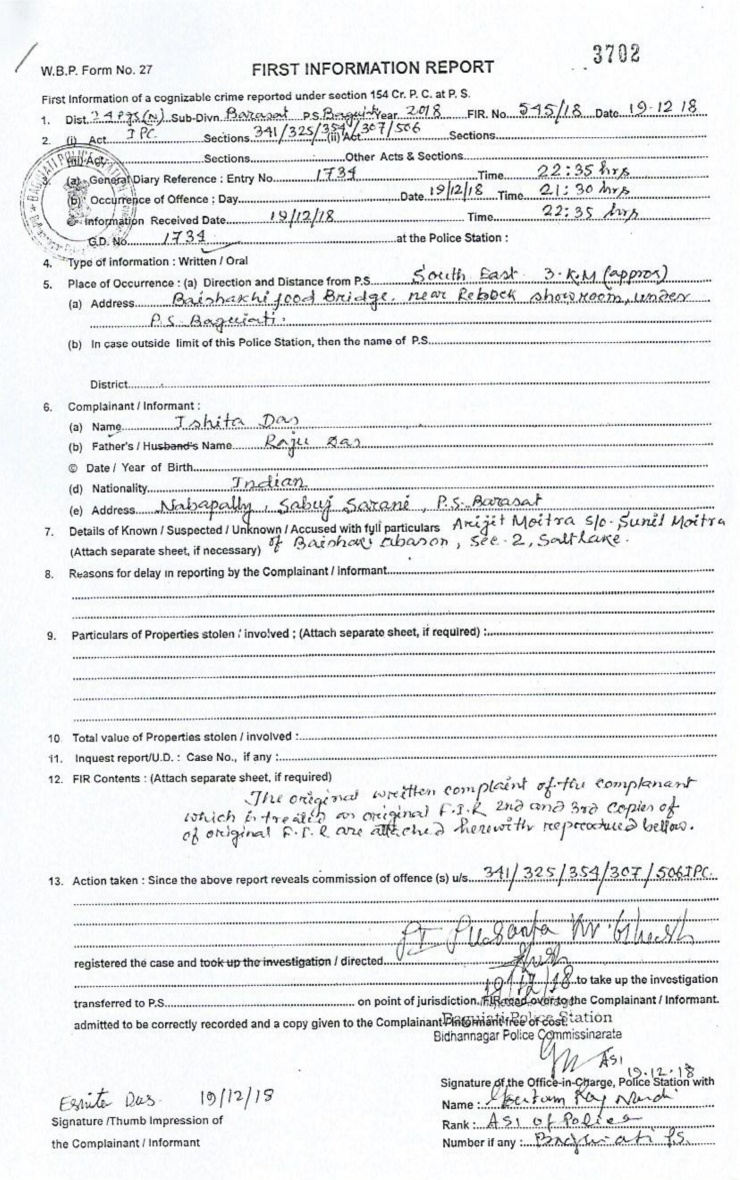 3702
W.B.P. Form No. 27
FIRST INFORMATION REPORT
First Information of a cognizable crime reported under section 154 Cr. P. C. at P. S.
1. Dist. 24 Pgs(N) Sub-Divn. Barasat P.S. Baguiati Year 2018 FIR. No. 545/18 Date 19-12 18
2. (i) Act IPC. Sections 341/325/354/307/506 (ii) Act Sections
(iii) Act Sections Other Acts & Sections
3. (a) General Diary Reference : Entry No 1734 Time 22:35 hrs
(b) Occurrence of Offence : Day Date 19/12/18 Time 21:30 hrs
© Information Received Date 19/12/18 Time 22:35 hrs
G.D. No. 1734 at the Police Station :
4. Type of information : Written / Oral
5. Place of Occurrence : (a) Direction and Distance from P.S. South East 3.K.M (approx)
(a) Address Baishakhi food Bridge. near Rebock showroom, under
P.S. Baguiati.
(b) In case outside limit of this Police Station, then the name of P.S.
District
6. Complainant / Informant :
(a) Name Ishita Das
(b) Father's / Husband's Name Raju Das
© Date / Year of Birth
(d) Nationality Indian
(e) Address Nabapally, Sabuj Sarani, P.S. Barasat
7. Details of Known / Suspected / Unknown / Accused with full particulars Arijit Moitra s/o- Sunil Moitra
(Attach separate sheet, if necessary) of Baishaki abason, Sec-2, Saltlake.
8. Reasons for delay in reporting by the Complainant / Informant
9. Particulars of Properties stolen / involved ; (Attach separate sheet, if required) :
10. Total value of Properties stolen / involved :
11. Inquest report/U.D. : Case No., if any :
12. FIR Contents : (Attach separate sheet, if required)
The original written complaint of the complanant
which is treated as original F.I.R 2nd and 3rd copies of
of original F.I.R are attached herewith reproduced bellow.
13. Action taken : Since the above report reveals commission of offence (s) u/s. 341/325/354/307/506 IPC.
registered the case and took up the investigation / directed
19/12/18 to take up the investigation
transferred to P.S. on point of jurisdiction. FIR read over to the Complainant / Informant.
admitted to be correctly recorded and a copy given to the Complainant / Informant free of cost.
Baguiati Police Station
Bidhannagar Police Commissinarate
ASI
19.12.18
Signature of the Office-in-Charge, Police Station with
Das 19/12/18
Name :
Signature /Thumb Impression of
Rank : ASI of Police
the Complainant / Informant
Number if any : Baguiati P.S.